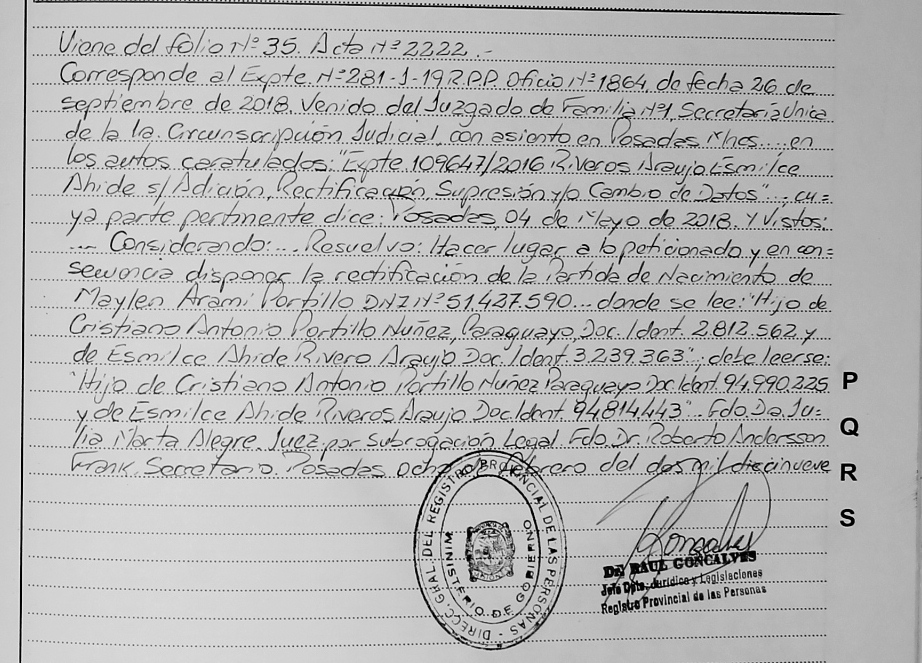 Viene del folio Nº 35. Acta Nº 2222.-
Corresponde al Expte. Nº 281-1-19 R.P.P. Oficio Nº 1864, de fecha 26 de
septiembre de 2018. Venido del Juzgado de Familia Nº1, Secretaría Unica
de la 1a. Circunscripción Judicial, con asiento en Posadas Mnes..., en
los autos caratulados: "Expte. 109647/2016 Riveros Araujo Esmilce
Ahide s/ Adición, Rectificación, Supresión y/o Cambio de Datos"; cu=
ya parte pertinente dice: Posadas, 04 de Mayo de 2018. Y Vistos:
... Considerando:... Resuelvo: Hacer lugar a lo peticionado y en con=
secuencia disponer la rectificación de la Partida de Nacimiento de
Maylen Arami Portillo DNI Nº 51.427.590... donde se lee: "Hijo de
Cristiano Antonio Portillo Nuñez, Paraguayo, Doc. Ident. 2.812.562 y
de Esmilce Ahide Rivero Araujo Doc. Ident. 3.239.363"; debe leerse:
"Hijo de Cristiano Antonio Portillo Nuñez Paraguayo Doc. Ident. 94.990.225
y de Esmilce Ahide Riveros Araujo Doc. Ident. 94814443". Fdo. Da. Ju=
lia Marta Alegre. Juez por Subrogación Legal. Fdo. Dr. Roberto Andersson
Frank. Secretario. Posadas, ocho de febrero del dos mil diecinueve
P
Q
R
S
DIRECC. GRAL. DEL REGISTRO PROVINCIAL DE LAS PERSONAS -
MINISTERIO DE GOBIERNO
RAUL GONCALVES
Jefe Dpto. Jurídico y Legislaciones
Registro Provincial de las Personas